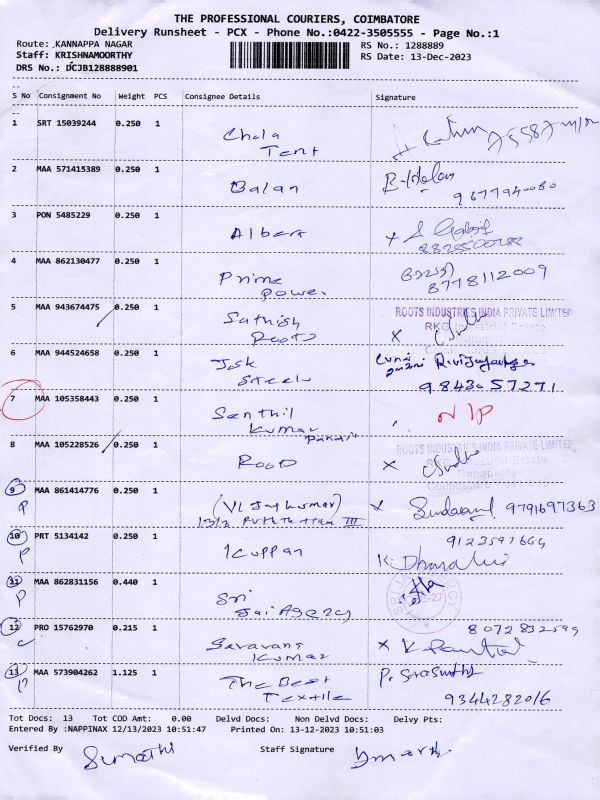 THE PROFESSIONAL COURIERS, COIMBATORE
Delivery Runsheet - PCX - Phone No.:0422-3505555 - Page No.:1
Route: KANNAPPA NAGAR RS No.: 1288889
Staff: KRISHNAMOORTHY RS Date: 13-Dec-2023
DRS No.: DCJB128888901
S No Consignment No Weight PCS Consignee Details Signature
1 SRT 15039244 0.250 1 Chola
Tent
2 MAA 571415389 0.250 1 Balan
3 PON 5485229 0.250 1 Albert
4 MAA 862130477 0.250 1 Prime
Power
8778112009
5 MAA 943674475 0.250 1 Sathish
Roots
ROOTS INDUSTRIES INDIA PRIVATE LIMITED
RKG Industrial Estate
6 MAA 944524658 0.250 1 Jsk
Steels
9843057271
7 MAA 105358443 0.250 1 Senthil
Kumar
N/P
8 MAA 105228526 0.250 1 Roots
ROOTS INDUSTRIES INDIA PRIVATE LIMITED
RKG Industrial Estate
9 MAA 861414776 0.250 1 9791697363
P
10 PRT 5134142 0.250 1 Kuppan 9123597664
P
11 MAA 862831156 0.440 1 Sri
Sai Agency
P
12 PRO 15762970 0.215 1 Saravana
Kumar
13 MAA 573904262 1.125 1 The Best
Textile
9344282016
Tot Docs: 13 Tot COD Amt: 0.00 Delvd Docs: Non Delvd Docs: Delvy Pts:
Entered By :NAPPINAX 12/13/2023 10:51:47 Printed On: 13-12-2023 10:51:03
Verified By Sumathi Staff Signature